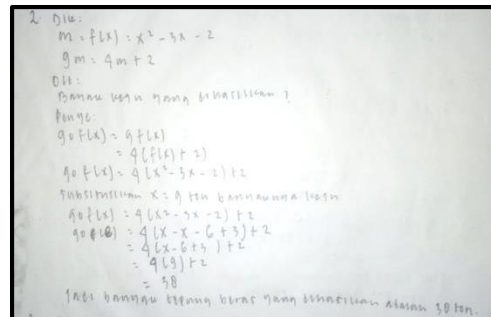 2. Dik:
m = f(x) = x² - 3x - 2
gm = 4m + 2
Dit:
Banyak keju yang dihasilkan ?
Penye:
go f(x) = g f(x)
= 4(f(x) + 2)
go f(x) = 4(x² - 3x - 2) + 2
substitusikan x = 9 ton keju
go f(x) = 4(x² - 3x - 2) + 2
= 4(x - x - 6 + 3) + 2
= 4(x - 6 + 3) + 2
= 4(9) + 2
= 38
Jadi tepung beras yang dihasilkan adalah 38 ton.